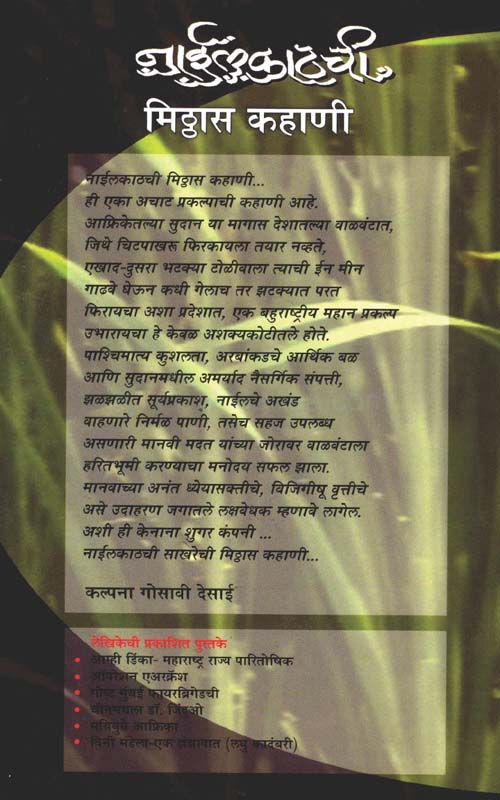 नाईलकाठची
मिठ्ठास कहाणी
नाईलकाठची मिठ्ठास कहाणी...
ही एका अचाट प्रकल्पाची कहाणी आहे.
आफ्रिकेतल्या सुदान या मागास देशातल्या वाळवंटात,
जिथे चिटपाखरू फिरकायला तयार नव्हते,
एखाद-दुसरा भटक्या टोळीवाला त्याची ईन मीन
गाढवे घेऊन कधी गेलाच तर झटक्यात परत
फिरायचा अशा प्रदेशात, एक बहुराष्ट्रीय महान प्रकल्प
उभारायचा हे केवळ अशक्यकोटीतले होते.
पाश्चिमात्य कुशलता, अरबांकडचे आर्थिक बळ
आणि सुदानमधील अमर्याद नैसर्गिक संपत्ती,
झळझळीत सूर्यप्रकाश, नाईलचे अखंड
वाहणारे निर्मळ पाणी, तसेच सहज उपलब्ध
असणारी मानवी मदत यांच्या जोरावर वाळवंटाला
हरितभूमी करण्याचा मनोदय सफल झाला.
मानवाच्या अनंत ध्येयासक्तीचे, विजिगीषू वृत्तीचे
असे उदाहरण जगातले लक्षवेधक म्हणावे लागेल.
अशी ही केनाना शुगर कंपनी ...
नाईलकाठची साखरेची मिठ्ठास कहाणी...
कल्पना गोसावी देसाई
लेखिकेची प्रकाशित पुस्तके
• आम्ही डिंका- महाराष्ट्र राज्य पारितोषिक
• ऑपरेशन एअरक्रॅश
• गोष्ट मुंबई फायरब्रिगेडची
• चीनमधला डॉ. जिंदओ
• आफ्रिका
• विनी मंडेला-एक (लघु कादंबरी)